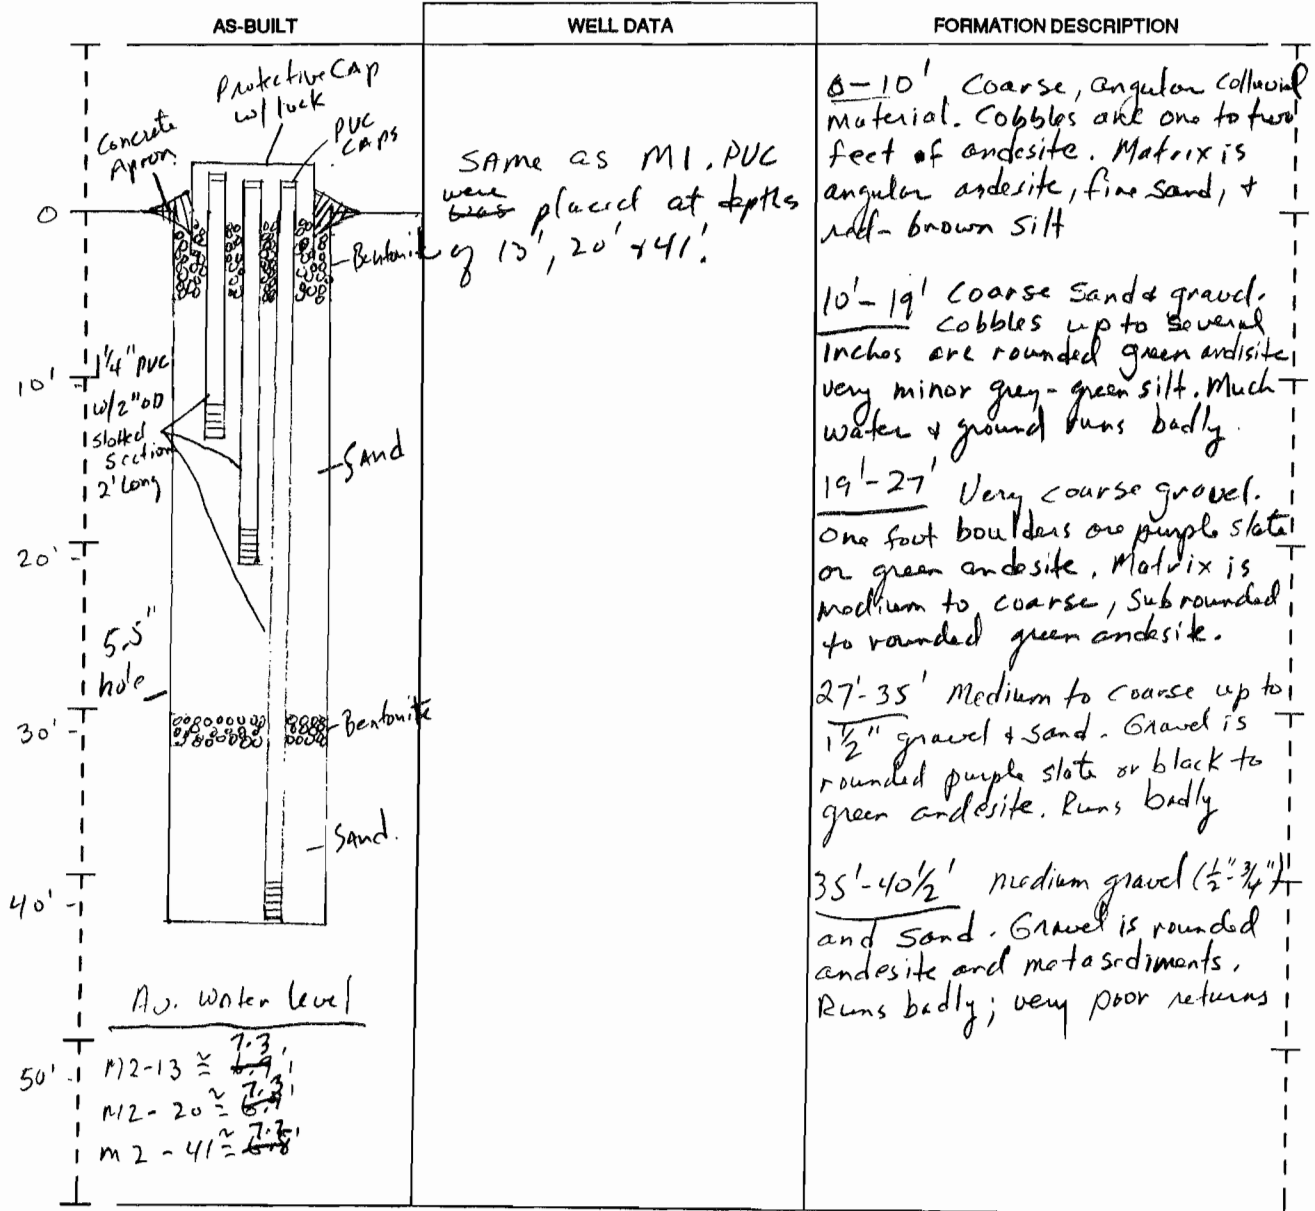 AS-BUILT
WELL DATA
FORMATION DESCRIPTION
Protective CAP
w/ lock
Concrete
Apron
PVC
CAPS
0
10'
20'
30'
40'
50'
Bentonite
1 1/4" PVC
w/2" OD
slotted
section
2' Long
SAND
5.5"
hole
Bentonite
SAND.
Av. Water level
M2-13 ≅ 7.3'
M2-20 ≅ 7.3'
M2-41 ≅
SAME as M1. PVC
were was placed at depths
of 13', 20' & 41'.
0-10' Coarse, angular colluvial
Material. Cobbles are one to two
feet of andesite. Matrix is
angular andesite, fine sand, &
red-brown silt
10'-19' Coarse Sand & gravel.
Cobbles up to several
Inches are rounded green andisite
very minor grey-green silt. Much
water & ground runs badly.
19'-27' Very coarse gravel.
One foot boulders are purple slate
or green andesite. Matrix is
medium to coarse, Subrounded
to rounded green andesite.
27'-35' Medium to coarse up to
1 1/2" gravel & sand. Gravel is
rounded purple slate or black to
green andesite. Runs badly
35'-40 1/2' medium gravel (1/2"-3/4")
and Sand. Gravel is rounded
andesite and metasediments.
Runs badly; very poor returns